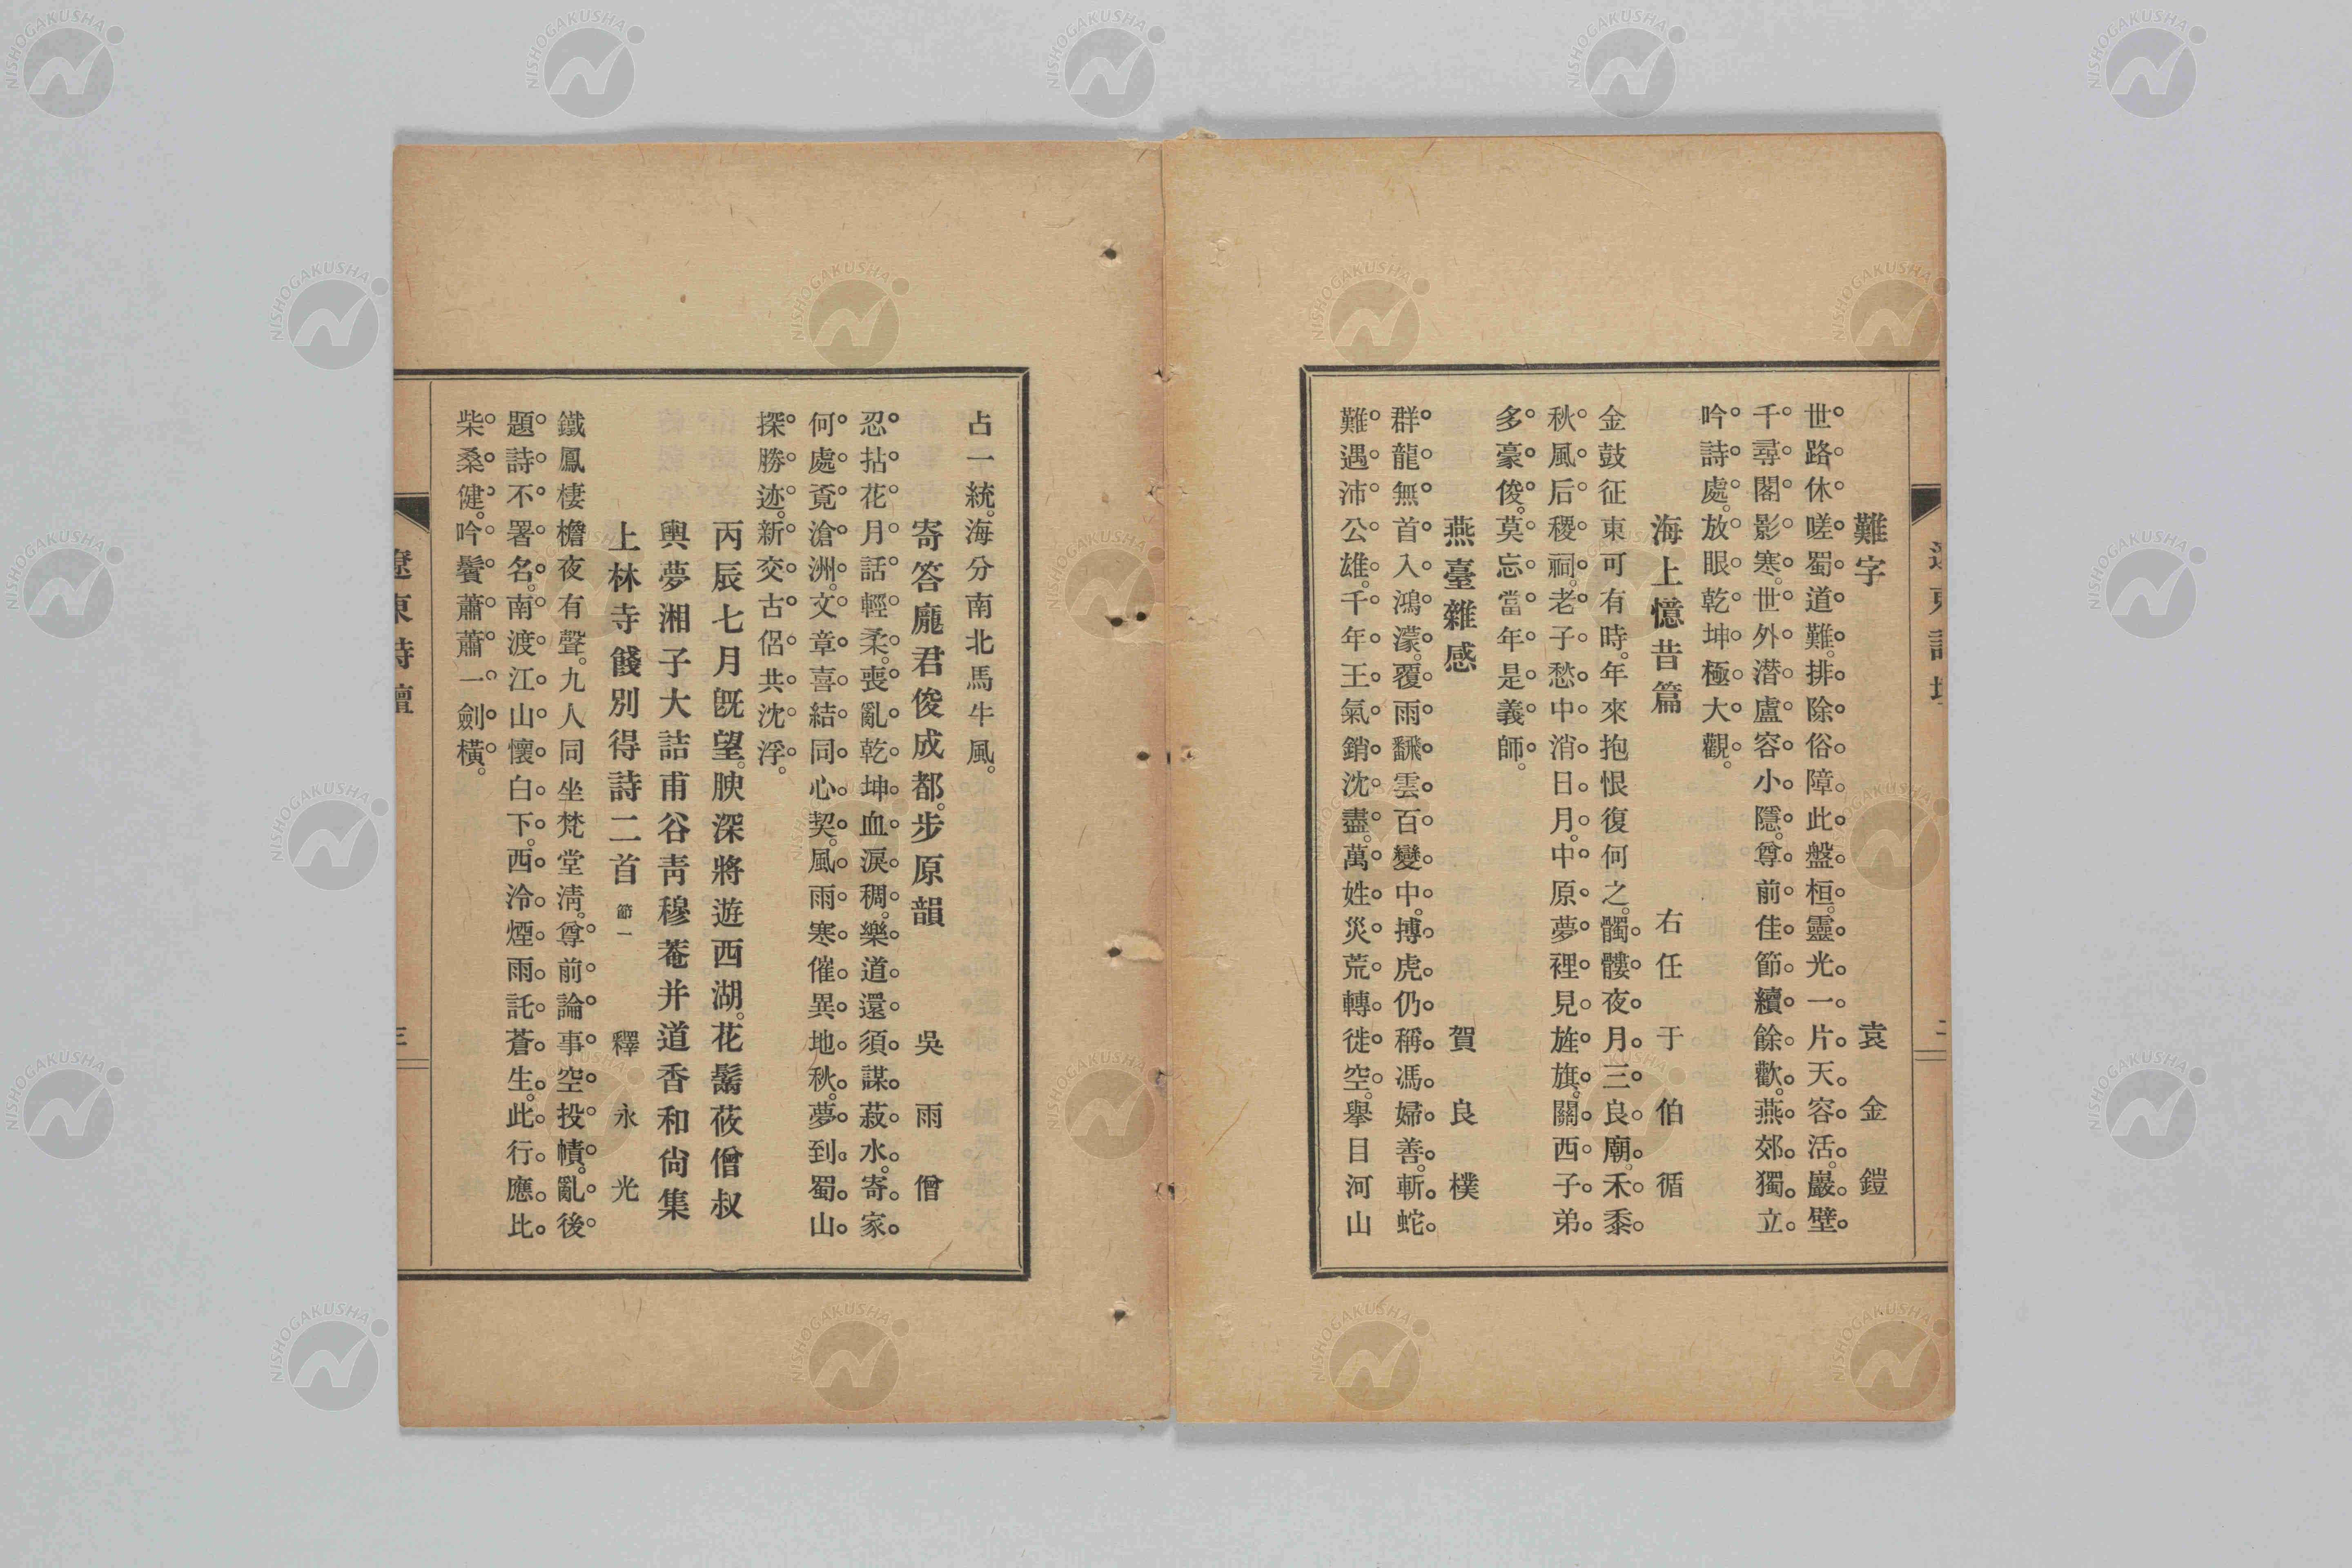 難字　袁金鎧
世路休嗟蜀道難。排除俗障此盤桓。靈光一片天容活。巖壁
千尋閣影寒。世外潛盧容小隱。尊前佳節續餘歡。燕郊獨立
吟詩處。放眼乾坤極大觀。
海上憶昔篇　右任　于伯循
金鼓征東可有時。年來抱恨復何之。髑髏夜月三良廟。禾黍
秋風后稷祠。老子愁中消日月。中原夢裡見旌旗。關西子弟
多豪俊。莫忘當年是義師。
燕臺雜感　賀良樸
群龍無首入鴻濛。覆雨飜雲百變中。搏虎仍稱馮婦善。斬蛇
難遇沛公雄。千年王氣銷沈盡。萬姓災荒轉徙空。擧目河山
占一統。海分南北馬牛風。
寄答龐君俊成都。步原韻　吳雨僧
忍拈花月話輕柔。喪亂乾坤血淚稠。樂道還須謀菽水。寄家
何處覓滄洲。文章喜結同心契。風雨寒催異地秋。夢到蜀山
探勝迹。新交古侶共沈浮。
丙辰七月既望。腴深將遊西湖。花鬍莜僧叔
輿夢湘子大詰甫谷靑穆菴并道香和尙集
上林寺餞別得詩二首　節一　釋永光
鐵鳳棲檐夜有聲。九人同坐梵堂淸。尊前論事空投幘。亂後
題詩不署名。南渡江山懷白下。西泠煙雨託蒼生。此行應比
柴桑健。吟鬢蕭蕭一劍橫。
遼東詩壇
三
NISHOGAKUSHA